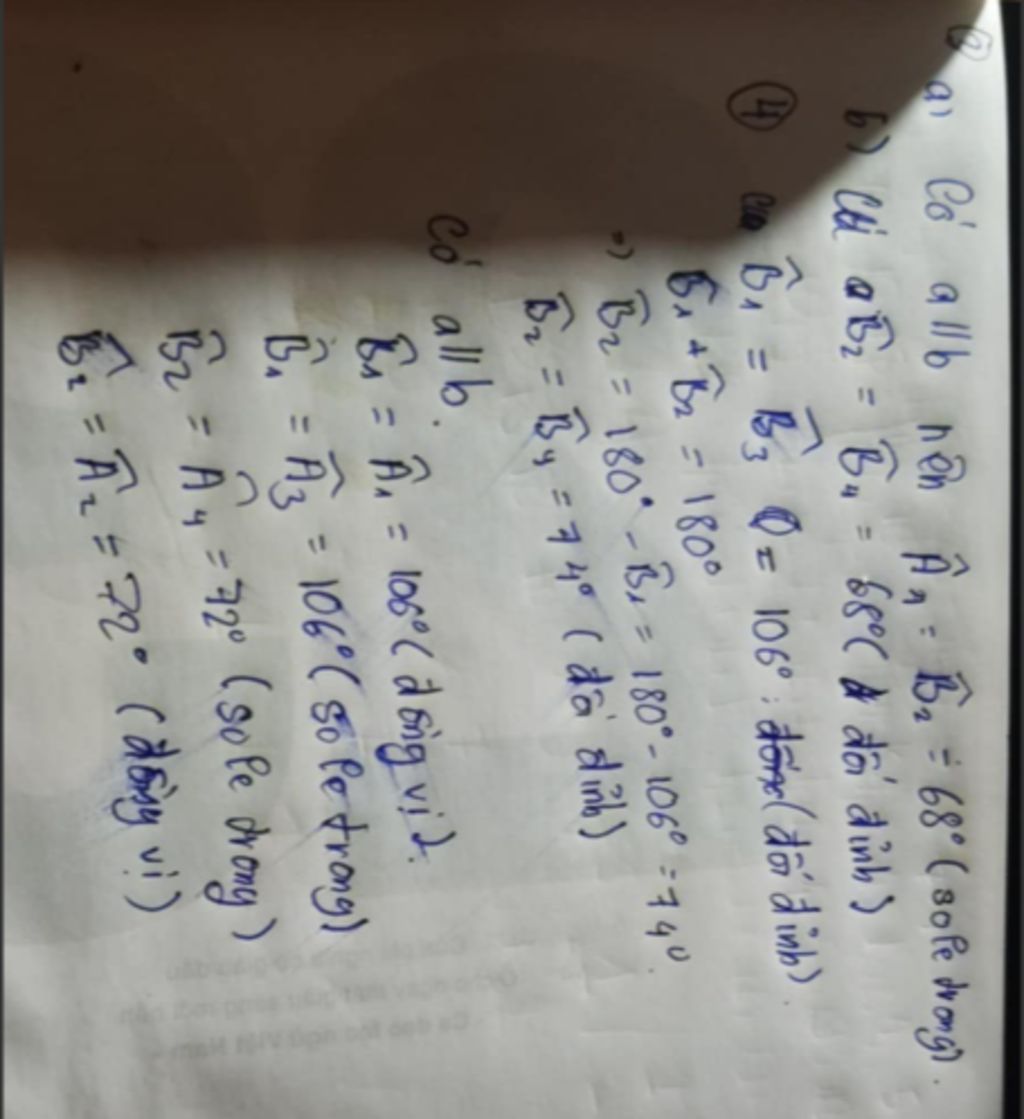 ③ a) Có a // b nên Â₁ = B̂₂ = 68° (sole trong).
b) B̂₂ = B̂₄ = 68° (đối đỉnh)
④ B̂₁ = B̂₃ = 106° (đối đỉnh).
B̂₁ + B̂₂ = 180°
=) B̂₂ = 180° - B̂₁ = 180° - 106° = 74°
B̂₂ = B̂₄ = 74° (đối đỉnh)
Có a // b.
B̂₁ = Â₁ = 106° (đồng vị).
B̂₁ = Â₃ = 106° (so le trong)
B̂₂ = Â₄ = 72° (so le trong)
B̂₂ = Â₂ = 72° (đồng vị)